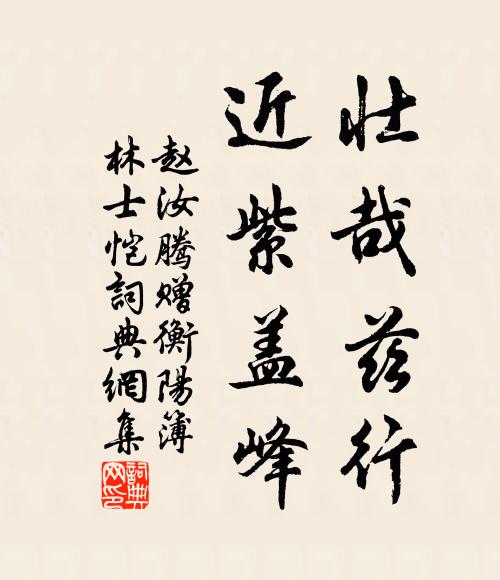 壮哉兹行
近紫盖峰
赵汝腾赠衡陽簿
林士恺詞典網集
詞典网印